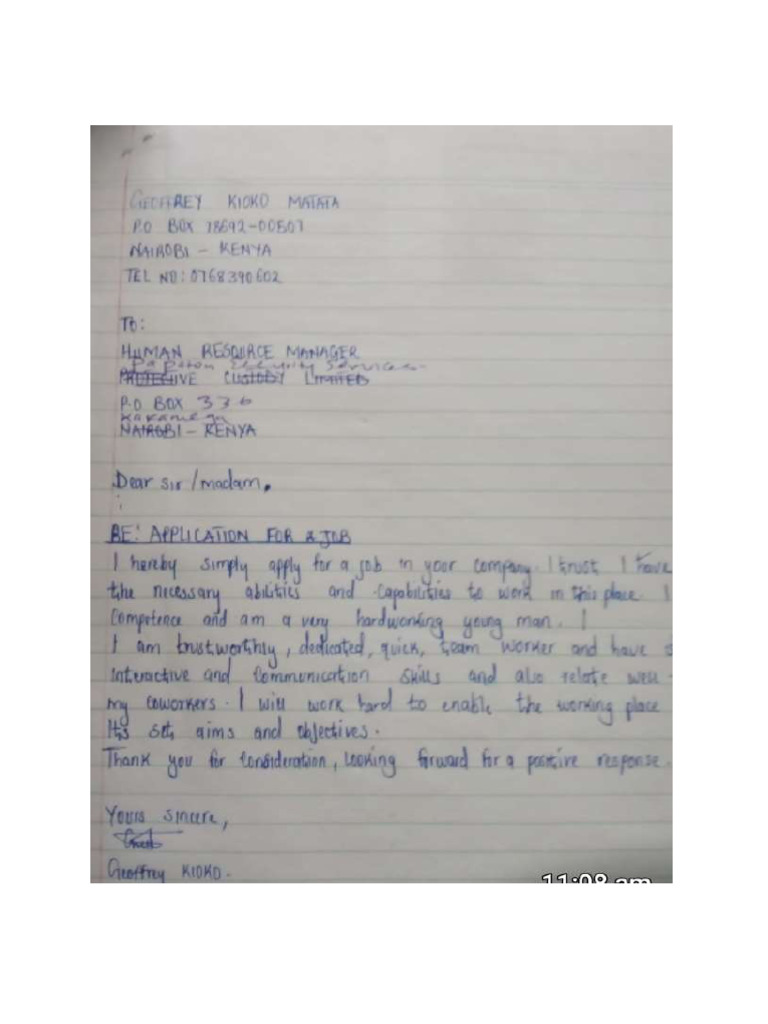 GEOFFREY KIOKO MATATA
P.O BOX 78692-00507
NAIROBI - KENYA
TEL NO: 0768390602
To:
HUMAN RESOURCE MANAGER
security services.
PROTECTIVE CUSTODY LIMITED
P.O BOX 336
Kakamega
NAIROBI - KENYA
Dear Sir/madam,
RE: APPLICATION FOR A JOB
I hereby simply apply for a job in your company. I trust I have
the nicessary abilities and capabilities to work in this place. I
Competence and am a very hardworking young man. I
I am trustworthy, dedicated, quick, team worker and have
interactive and Communication skills and also relate well
my coworkers. I will work hard to enable the working place
It's set, aims and objectives.
Thank you for Consideration, Looking forward for a positive response.
Yours Sincere,
Geoffrey KIOKO.
11:08 am